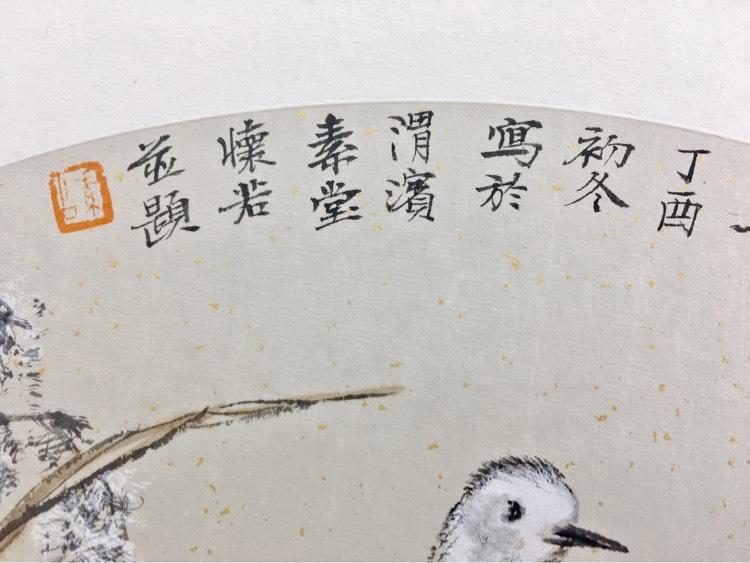 丁酉
初冬
寫於
渭濱
素堂
懷若
並題